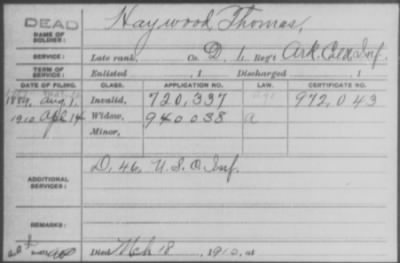 DEAD
NAME OF SOLDIER: Haywood, Thomas,
SERVICE: Late rank, Co. D, 1. Reg't Ark. Cold. Inf.
TERM OF SERVICE: Enlisted , 1 Discharged , 1
DATE OF FILING. CLASS. APPLICATION NO. LAW. CERTIFICATE NO.
1889, Aug. 1. Invalid, 720,337 972,043
1910 Apl. 14 Widow, 940038 a
Minor,
ADDITIONAL SERVICES: D, 46, U.S.C. Inf.
REMARKS:
Died Mch 18, 1910, at